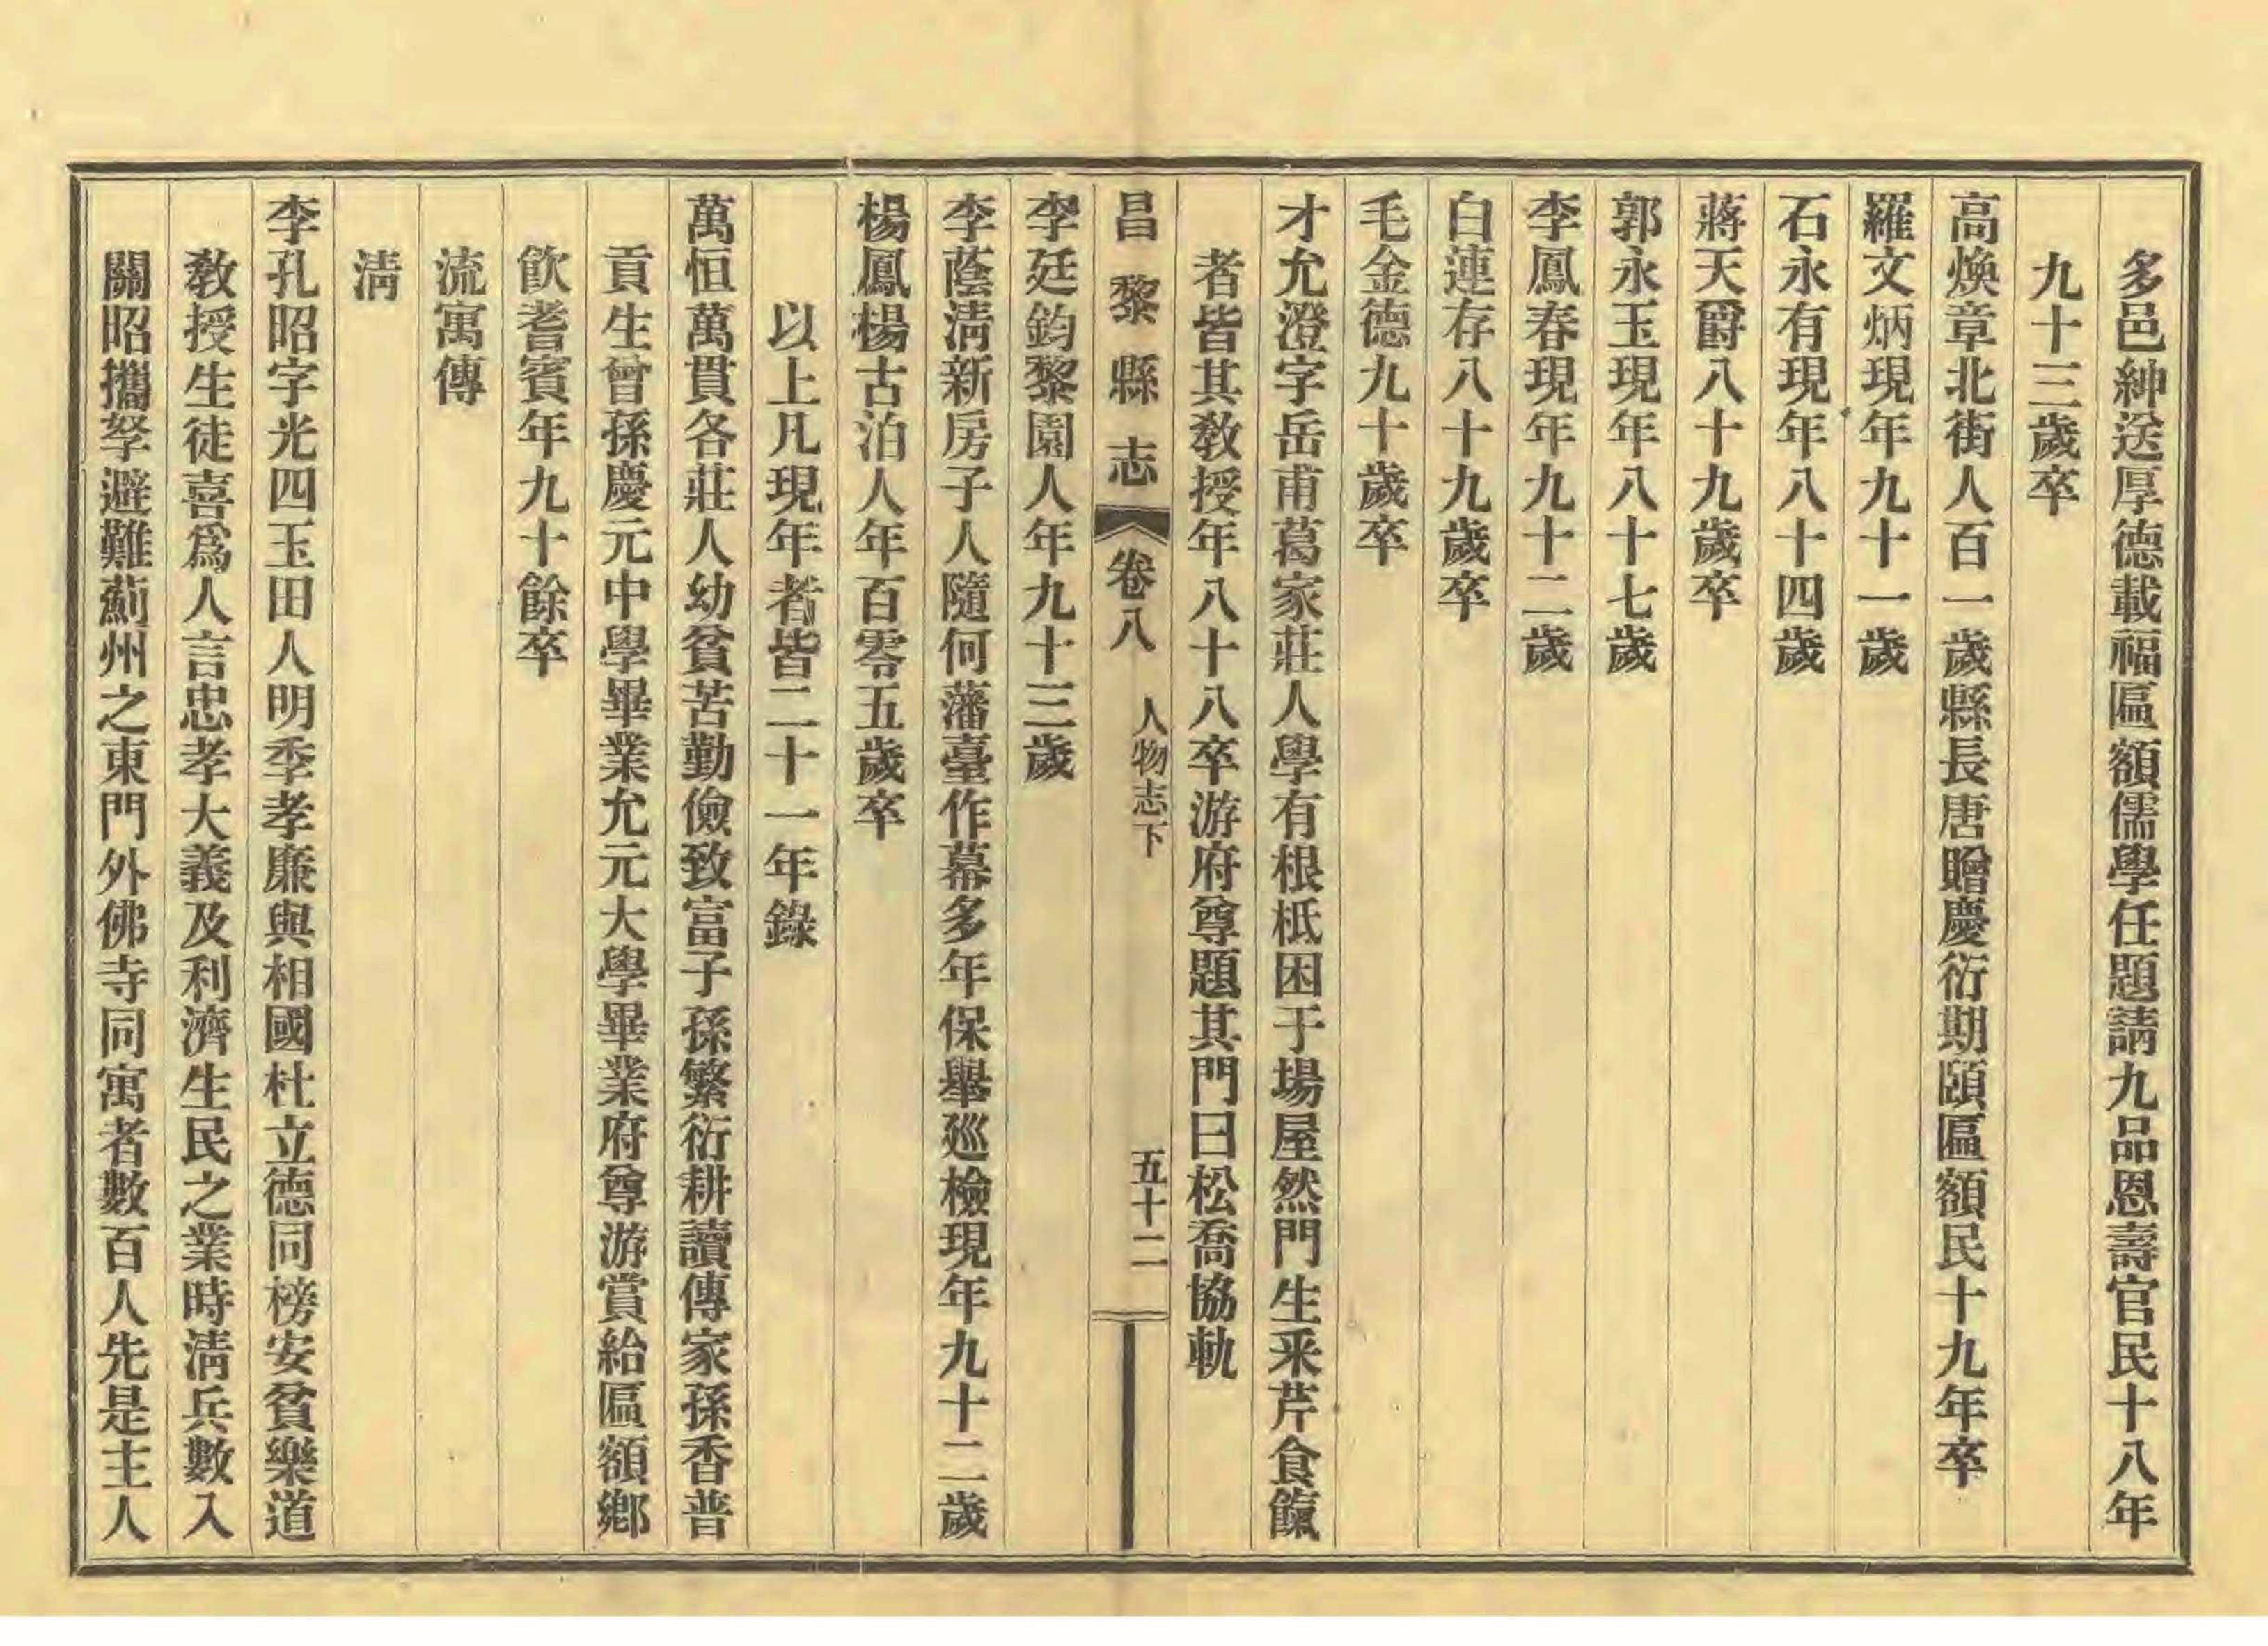 多邑紳送厚德載福匾額儒學任題請九品恩壽官民十八年
九十三歲卒
高煥章北街人百一歲縣長唐贈慶衍期頤匾額民十九年卒
羅文炳現年九十一歲
石永有現年八十四歲
蔣天爵八十九歲卒
郭永玉現年八十七歲
李鳳春現年九十二歲
白連存八十九歲卒
毛金德九十歲卒
才允澄字岳甫葛家莊人學有根柢困于場屋然門生釆芹食餼
者皆其敎授年八十八卒游府尊題其門曰松喬協軌
昌黎縣志 卷八 人物志下 五十二
李廷鈞黎園人年九十三歲
李蔭淸新房子人隨何藩臺作幕多年保舉巡檢現年九十二歲
楊鳳楊古泊人年百零五歲卒
以上凡現年者皆二十一年錄
萬恒萬貫各莊人幼貧苦勤儉致富子孫繁衍耕讀傳家孫香普
貢生曾孫慶元中學畢業允元大學畢業府尊游賞給匾額鄉
飮耆賓年九十餘卒
流寓傳
淸
李孔昭字光四玉田人明季孝廉與相國杜立德同榜安貧樂道
敎授生徒喜爲人言忠孝大義及利濟生民之業時淸兵數入
關昭攜孥避難薊州之東門外佛寺同寓者數百人先是主人